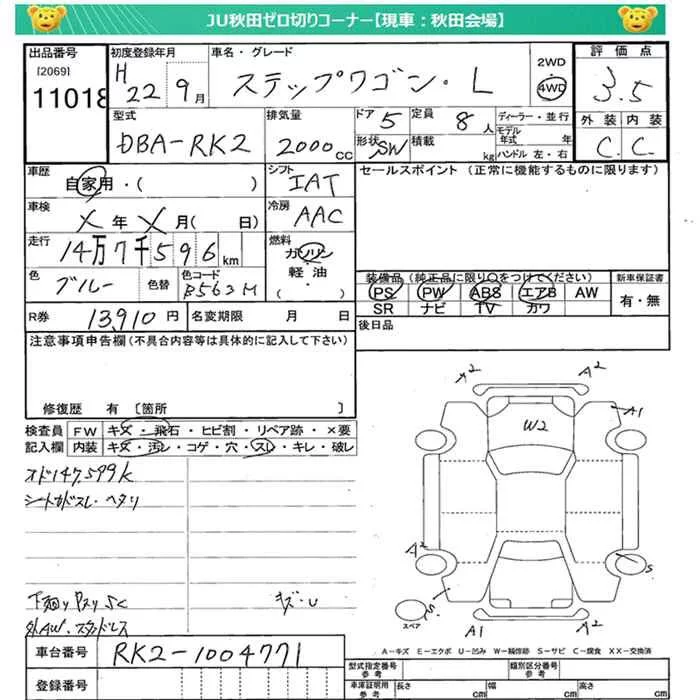 JU秋田ゼロ切りコーナー【現車：秋田会場】
出品番号
[2069]
11018
初度登録年月
H
22 9月
車名・グレード
ステップワゴン・L
2WD
4WD
評価点
3.5
外装 内装
C. C.
型式
DBA-RK2
排気量
2000cc
ドア 5
定員 8人
形状 SW
積載 kg
ディーラー・並行
モデル年式 年
ハンドル 左・右
車歴
自家用・( )
シフト
IAT
セールスポイント (正常に機能するものに限ります)
車検
X年X月( 日)
冷房
AAC
走行
14万7千596km
燃料
ガソリン
軽油
( )
色
ブルー
色替
色コード
B563M
装備品 (純正品に限り○をつけてください)
PS PW ABS エアB AW
SR ナビ TV カワ
新車保証書
有・無
R券 13,910円
名変期限 月 日
後日品
注意事項申告欄(不具合内容等は具体的に記入して下さい)
修復歴 有 [箇所 ]
検査員記入欄
FW キズ・飛石・ヒビ割・リペア跡・×要
内装 キズ・汚レ・コゲ・穴・スレ・キレ・破レ
オド147,599k
シートカドスレ・ヘタリ
キズ・U
外AW・スタッドレス
A2
A2
A1
W2
A2
S
S
A1
A2
スペア
A-キズ E-エクボ U-凹み W-補修跡 S-サビ C-腐食 XX-交換済
車台番号 RK2-1004771
登録番号
型式指定番号
参考
類別区分番号
参考
車庫証明用
参考
長さ cm
幅 cm
高さ cm